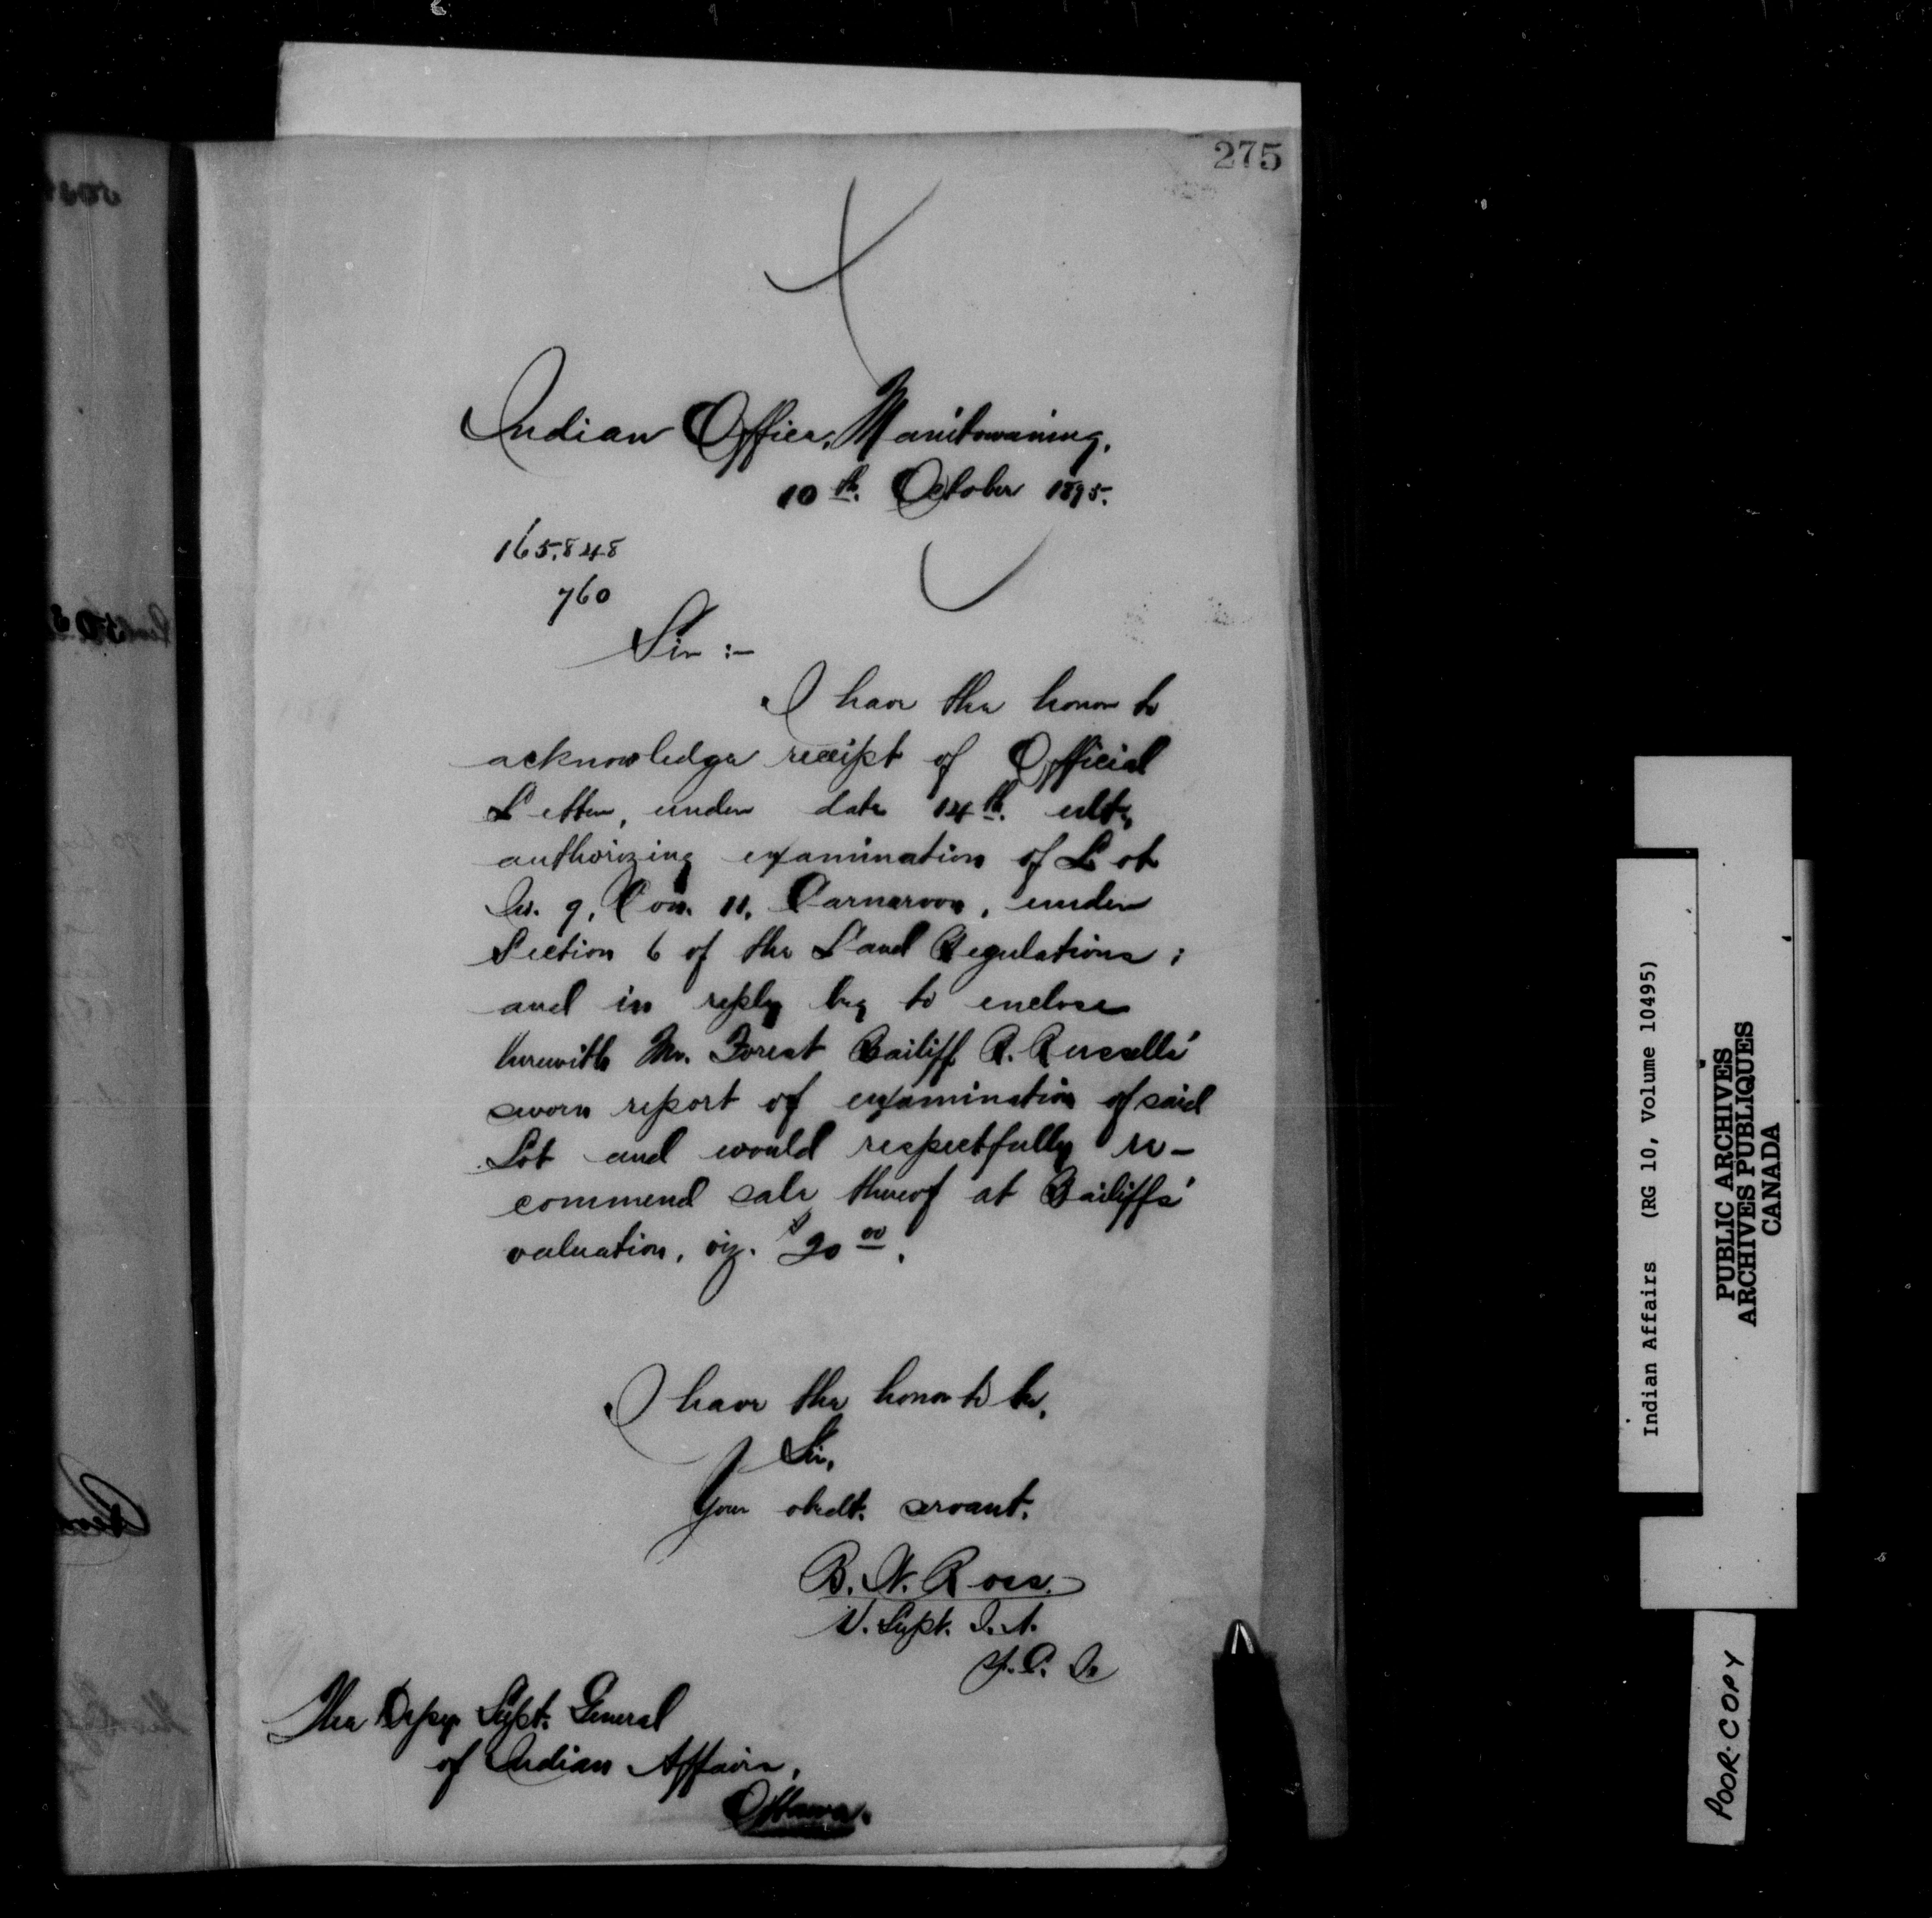 275
Indian Office, Manitowaning,
10th. October 1895.
165,848
760
Sir :-
I have the honor to
acknowledge receipt of Official
Letter, under date 14th. ulto,
authorizing examination of Lot
No. 9, Con. 11, Carnarvon, under
Section 6 of the Land Regulations ;
and in reply beg to enclose
herewith Mr. Forest Bailiff R. Russells'
sworn report of examination of said
Lot and would respectfully re-
commend sale thereof at Bailiffs'
valuation, viz. $20 00.
I have the honor to be,
Sir,
Your obedt. servant.
B. W. Ross.
V. Supt. I. A.
The Depy. Supt. General
of Indian Affairs,
Ottawa.
Indian Affairs (RG 10, Volume 10495)
PUBLIC ARCHIVES
ARCHIVES PUBLIQUES
CANADA
POOR COPY